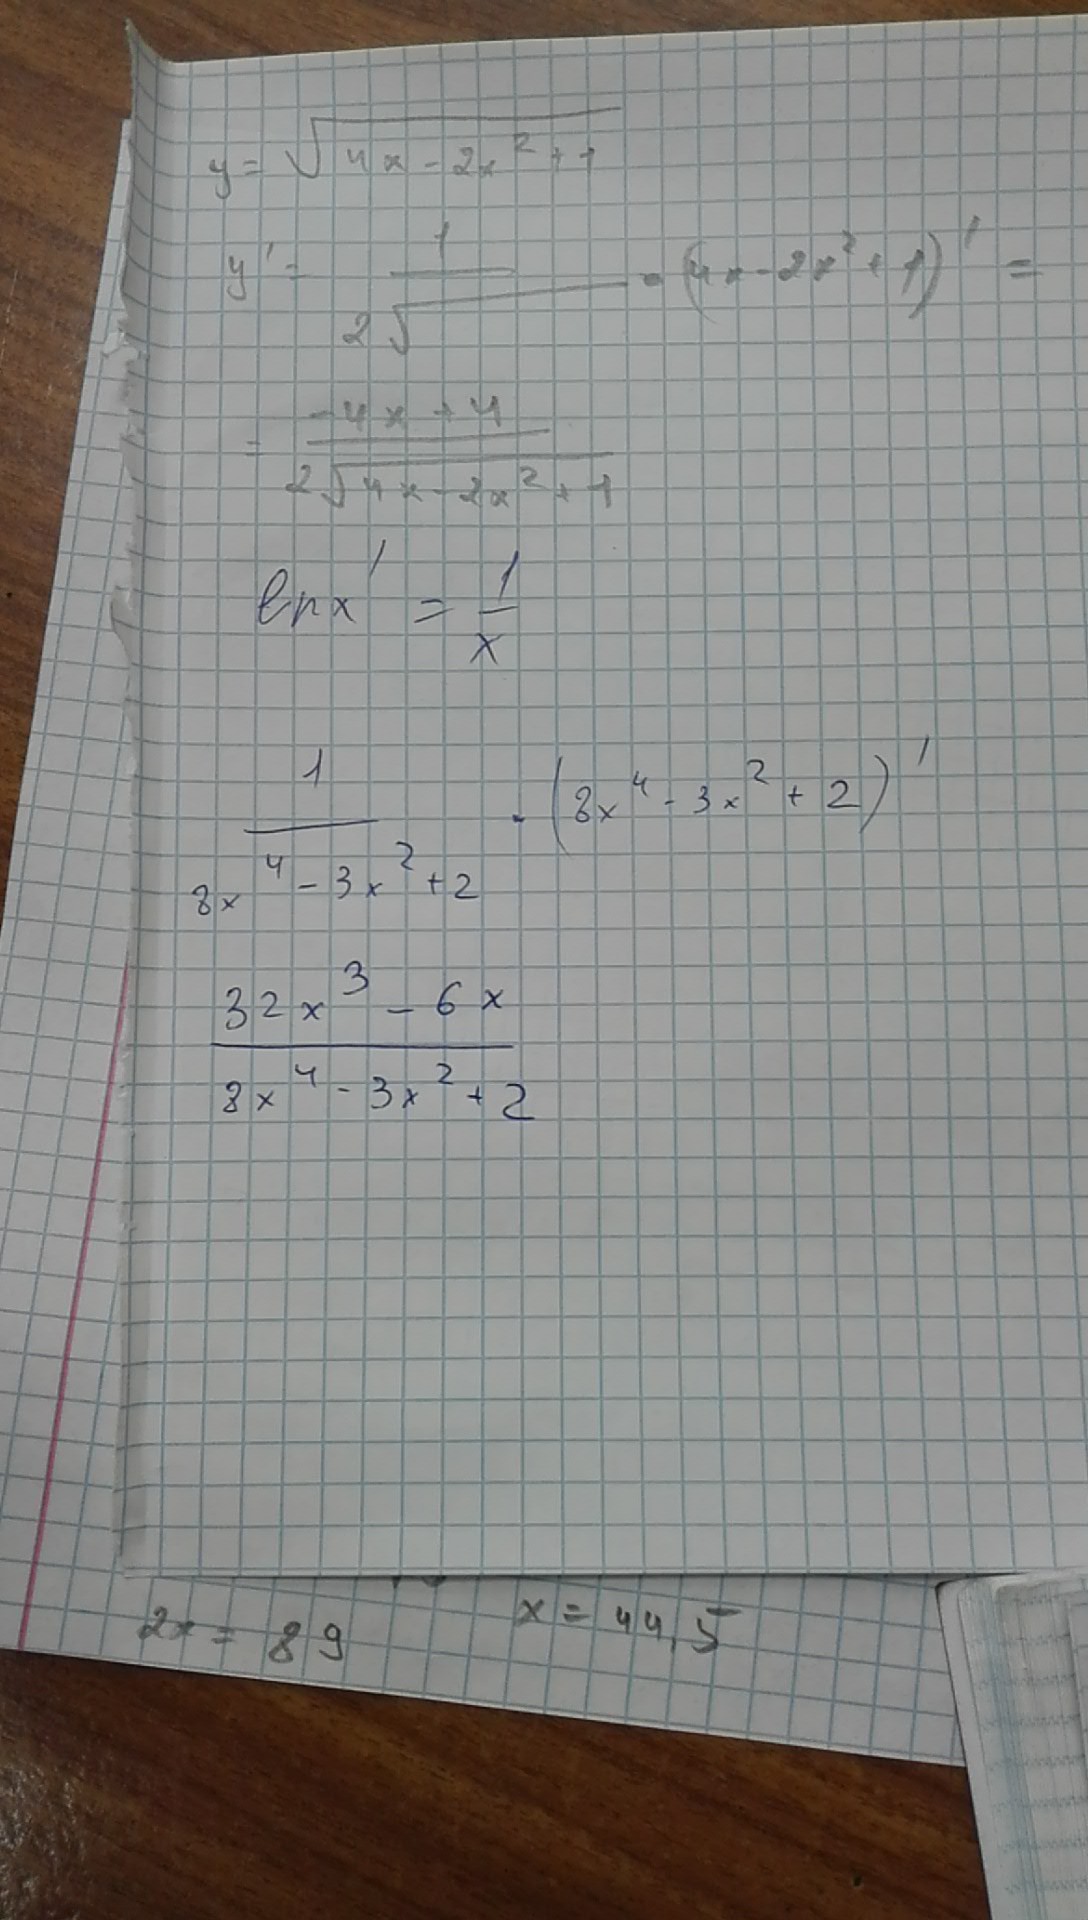 y = √(4x - 2x² + 1)
y' = 1 / 2√ · (4x - 2x² + 1)' =
= (-4x + 4) / 2√(4x - 2x² + 1)
ln x' = 1/x
1 / (8x⁴ - 3x² + 2) · (8x⁴ - 3x² + 2)'
(32x³ - 6x) / (8x⁴ - 3x² + 2)
2x = 89 x = 44,5